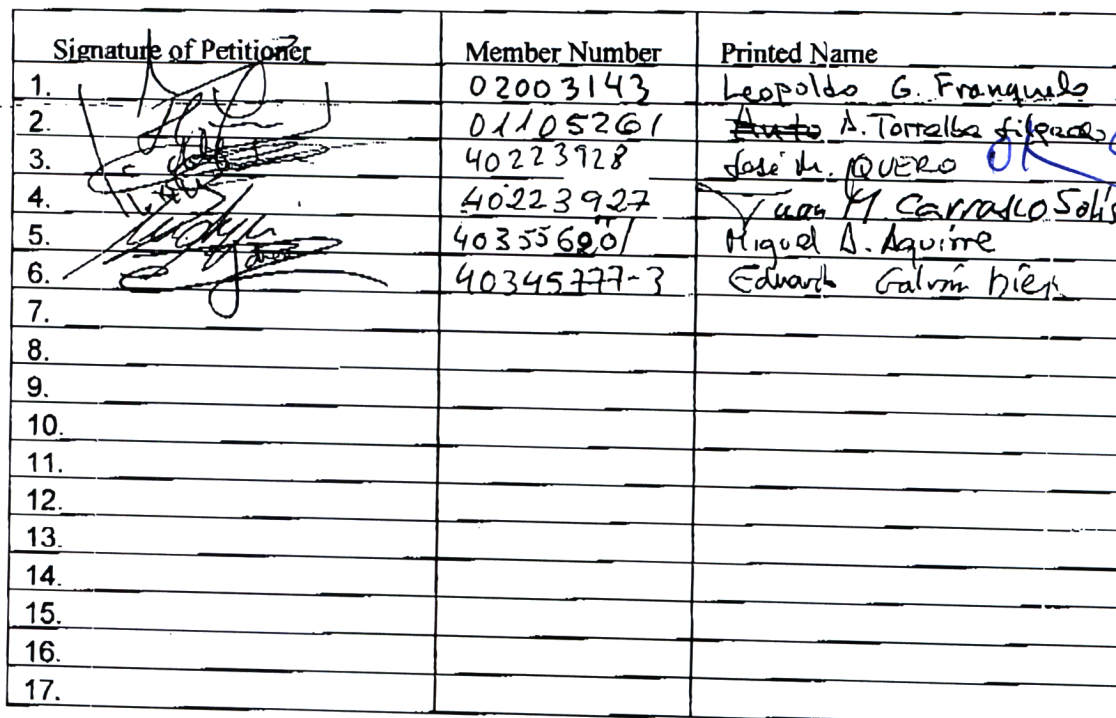 Signature of Petitioner Member Number Printed Name
1. 02003143 Leopoldo G. Franquelo
2. 01105261 A. Torralba
3. 40223928 José M. QUERO OK
4. 40223927 Juan M Carrasco Solís
5. Miguel A. Aguirre
6. 40345777-3 Eduardo Galván Díez
7.
8.
9.
10.
11.
12.
13.
14.
15.
16.
17.